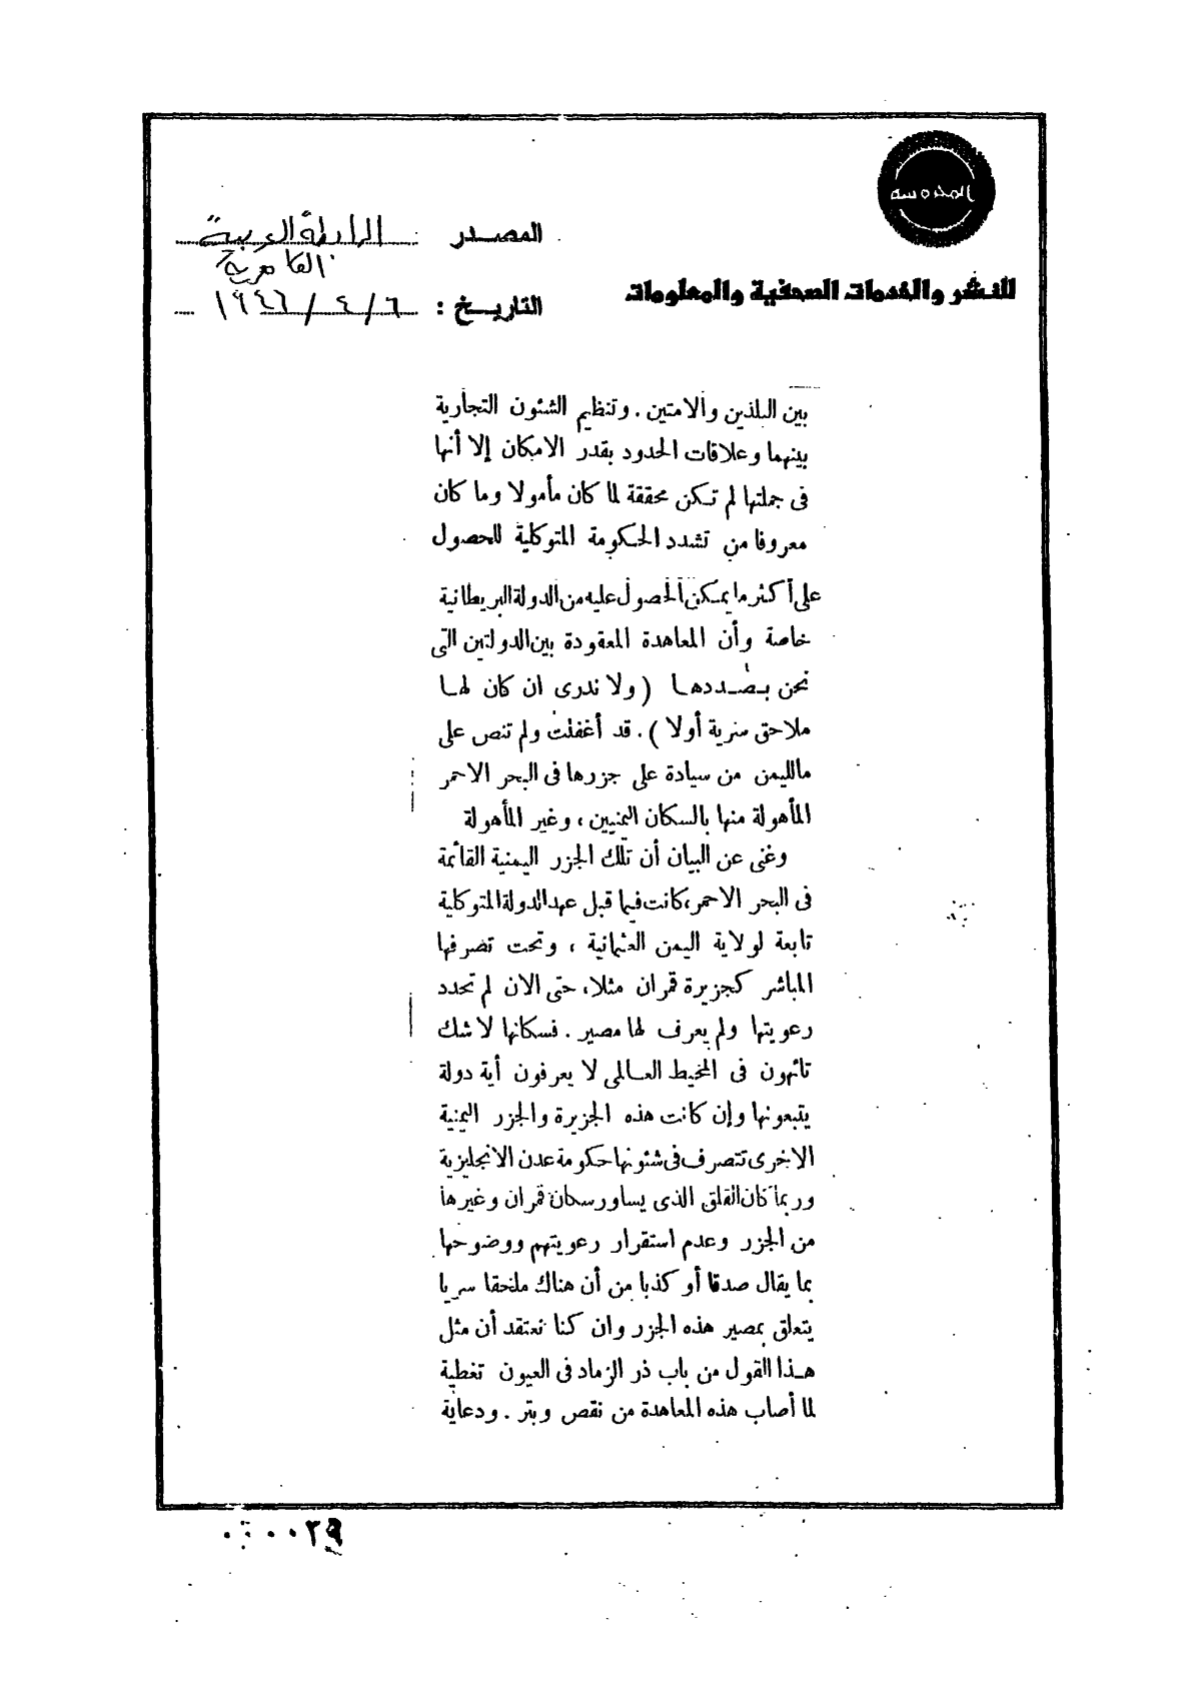 المحروسة
للنشر والخدمات الصحفية والمعلومات
المصدر الرابطة العربية
القاهرية
التاريخ : ٦/٤/١٩٤٦
بين البلدين والامتين . وتنظيم الشئون التجارية
بينهما وعلاقات الحدود بقدر الامكان إلا أنها
فى جملتها لم تكن محققة لما كان مأمولا وما كان
معروفا من تشدد الحكومة المتوكلية للحصول
على أكثر ما يمكن الحصول عليه من الدولة البريطانية
خاصة وأن المعاهدة المعقودة بين الدولتين التى
نحن بصددها ( ولا ندرى ان كان لها
ملاحق سرية أولا ) . قد أغفلت ولم تنص على
مالليمن من سيادة على جزرها فى البحر الاحمر
المأهولة منها بالسكان اليمنيين ، وغير المأهولة
وغنى عن البيان أن تلك الجزر اليمنية القائمة
فى البحر الاحمر، كانت فيما قبل عهد الدولة المتوكلية
تابعة لولاية اليمن العثمانية ، وتحت تصرفها
المباشر كجزيرة قمران مثلا، حتى الان لم تحدد
رعويتها ولم يعرف لها مصير . فسكانها لا شك
تائهون فى المحيط العالمى لا يعرفون أية دولة
يتبعونها وإن كانت هذه الجزيرة والجزر اليمنية
الاخرى تتصرف فى شئونها حكومة عدن الانجليزية
وربما كان القلق الذى يساور سكان قمران وغيرها
من الجزر وعدم استقرار رعويتهم ووضوحها
بما يقال صدقا أو كذبا من أن هناك ملحقا سريا
يتعلق بمصير هذه الجزر وان كنا نعتقد أن مثل
هذا القول من باب ذر الرماد فى العيون تغطية
لما أصاب هذه المعاهدة من نقص وبتر . ودعاية
٠٠٠٠٢٩